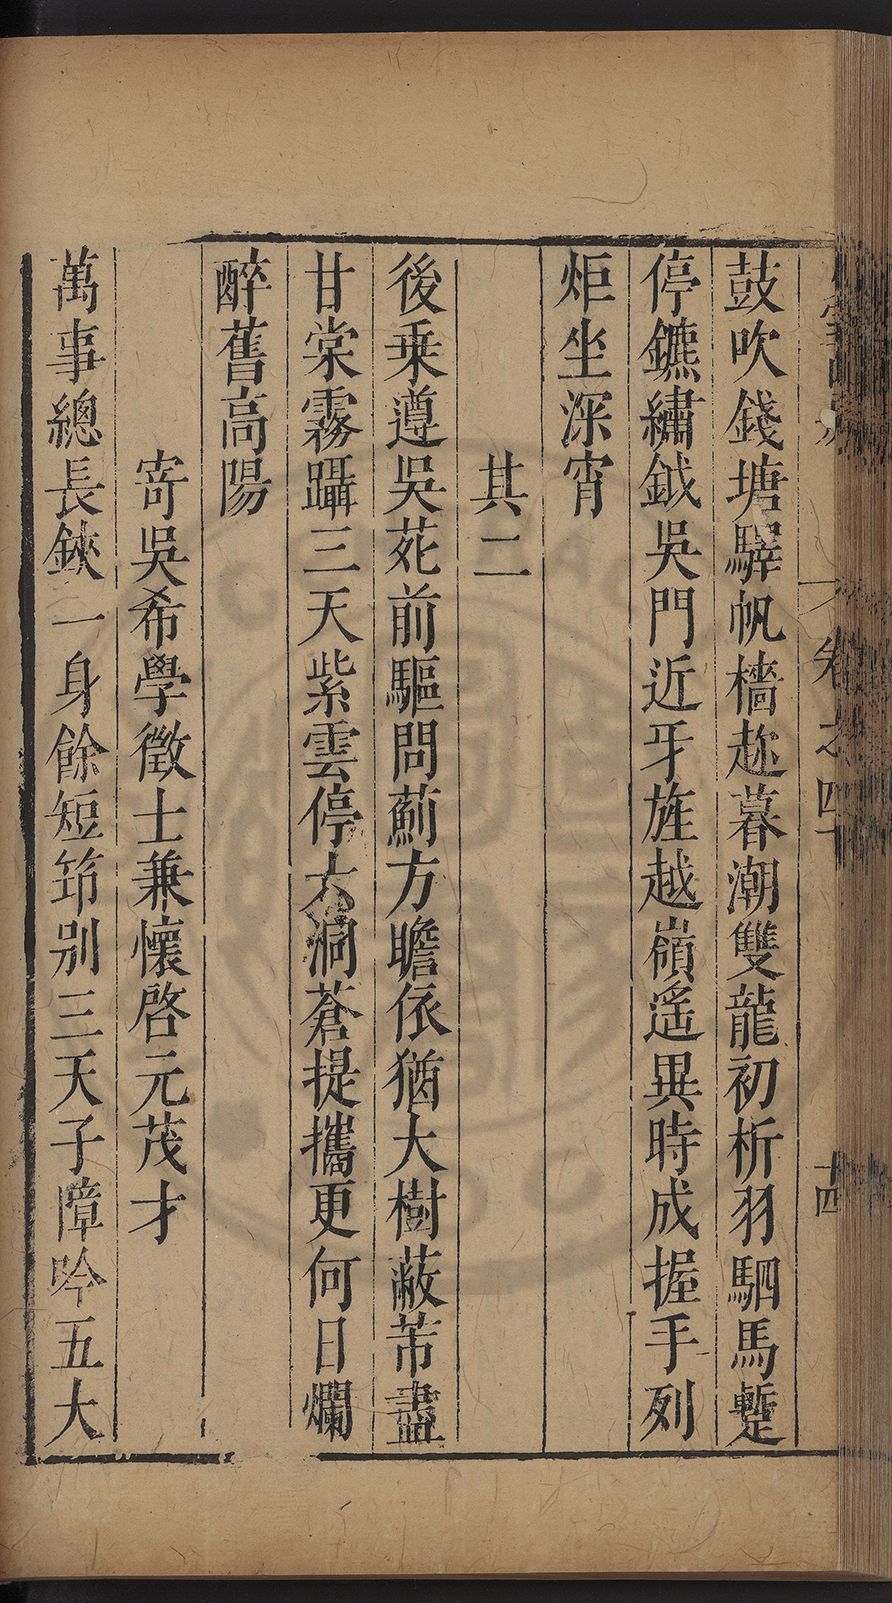 鼓吹錢塘驛帆檣趂暮潮雙龍初析羽駟馬蹔
停鑣繡鉞吳門近牙旌越嶺遙異時成握手列
炬坐深宵
其二
後乗遵吳苑前驅問薊方瞻依猶大樹蔽芾盡
甘棠霧躡三天紫雲停大洞蒼提攜更何日爛
醉舊高陽
寄吳希學徵士兼懷啓元茂才
萬事總長鋏一身餘短筇别三天子障吟五大
卷之四
十四